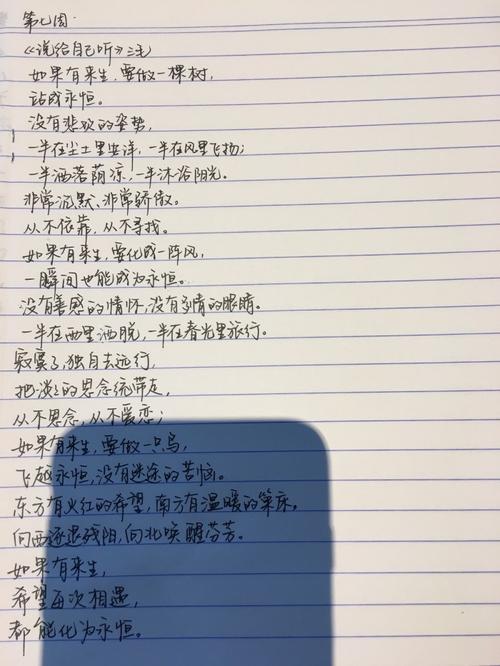 第七周.
《说给自己听》三毛
如果有来生,要做一棵树,
站成永恒。
没有悲欢的姿势,
一半在尘土里安详,一半在风里飞扬;
一半洒落荫凉,一半沐浴阳光。
非常沉默、非常骄傲。
从不依靠,从不寻找。
如果有来生,要化成一阵风,
一瞬间也能成为永恒。
没有善感的情怀,没有多情的眼睛。
一半在雨里洒脱,一半在春光里旅行。
寂寞了,独自去远行,
把淡淡的思念统带走,
从不思念,从不爱恋;
如果有来生,要做一只鸟,
飞越永恒,没有迷途的苦恼。
东方有火红的希望,南方有温暖的巢床。
向西逐退残阳,向北唤醒芬芳。
如果有来生,
希望每次相遇,
都能化为永恒。